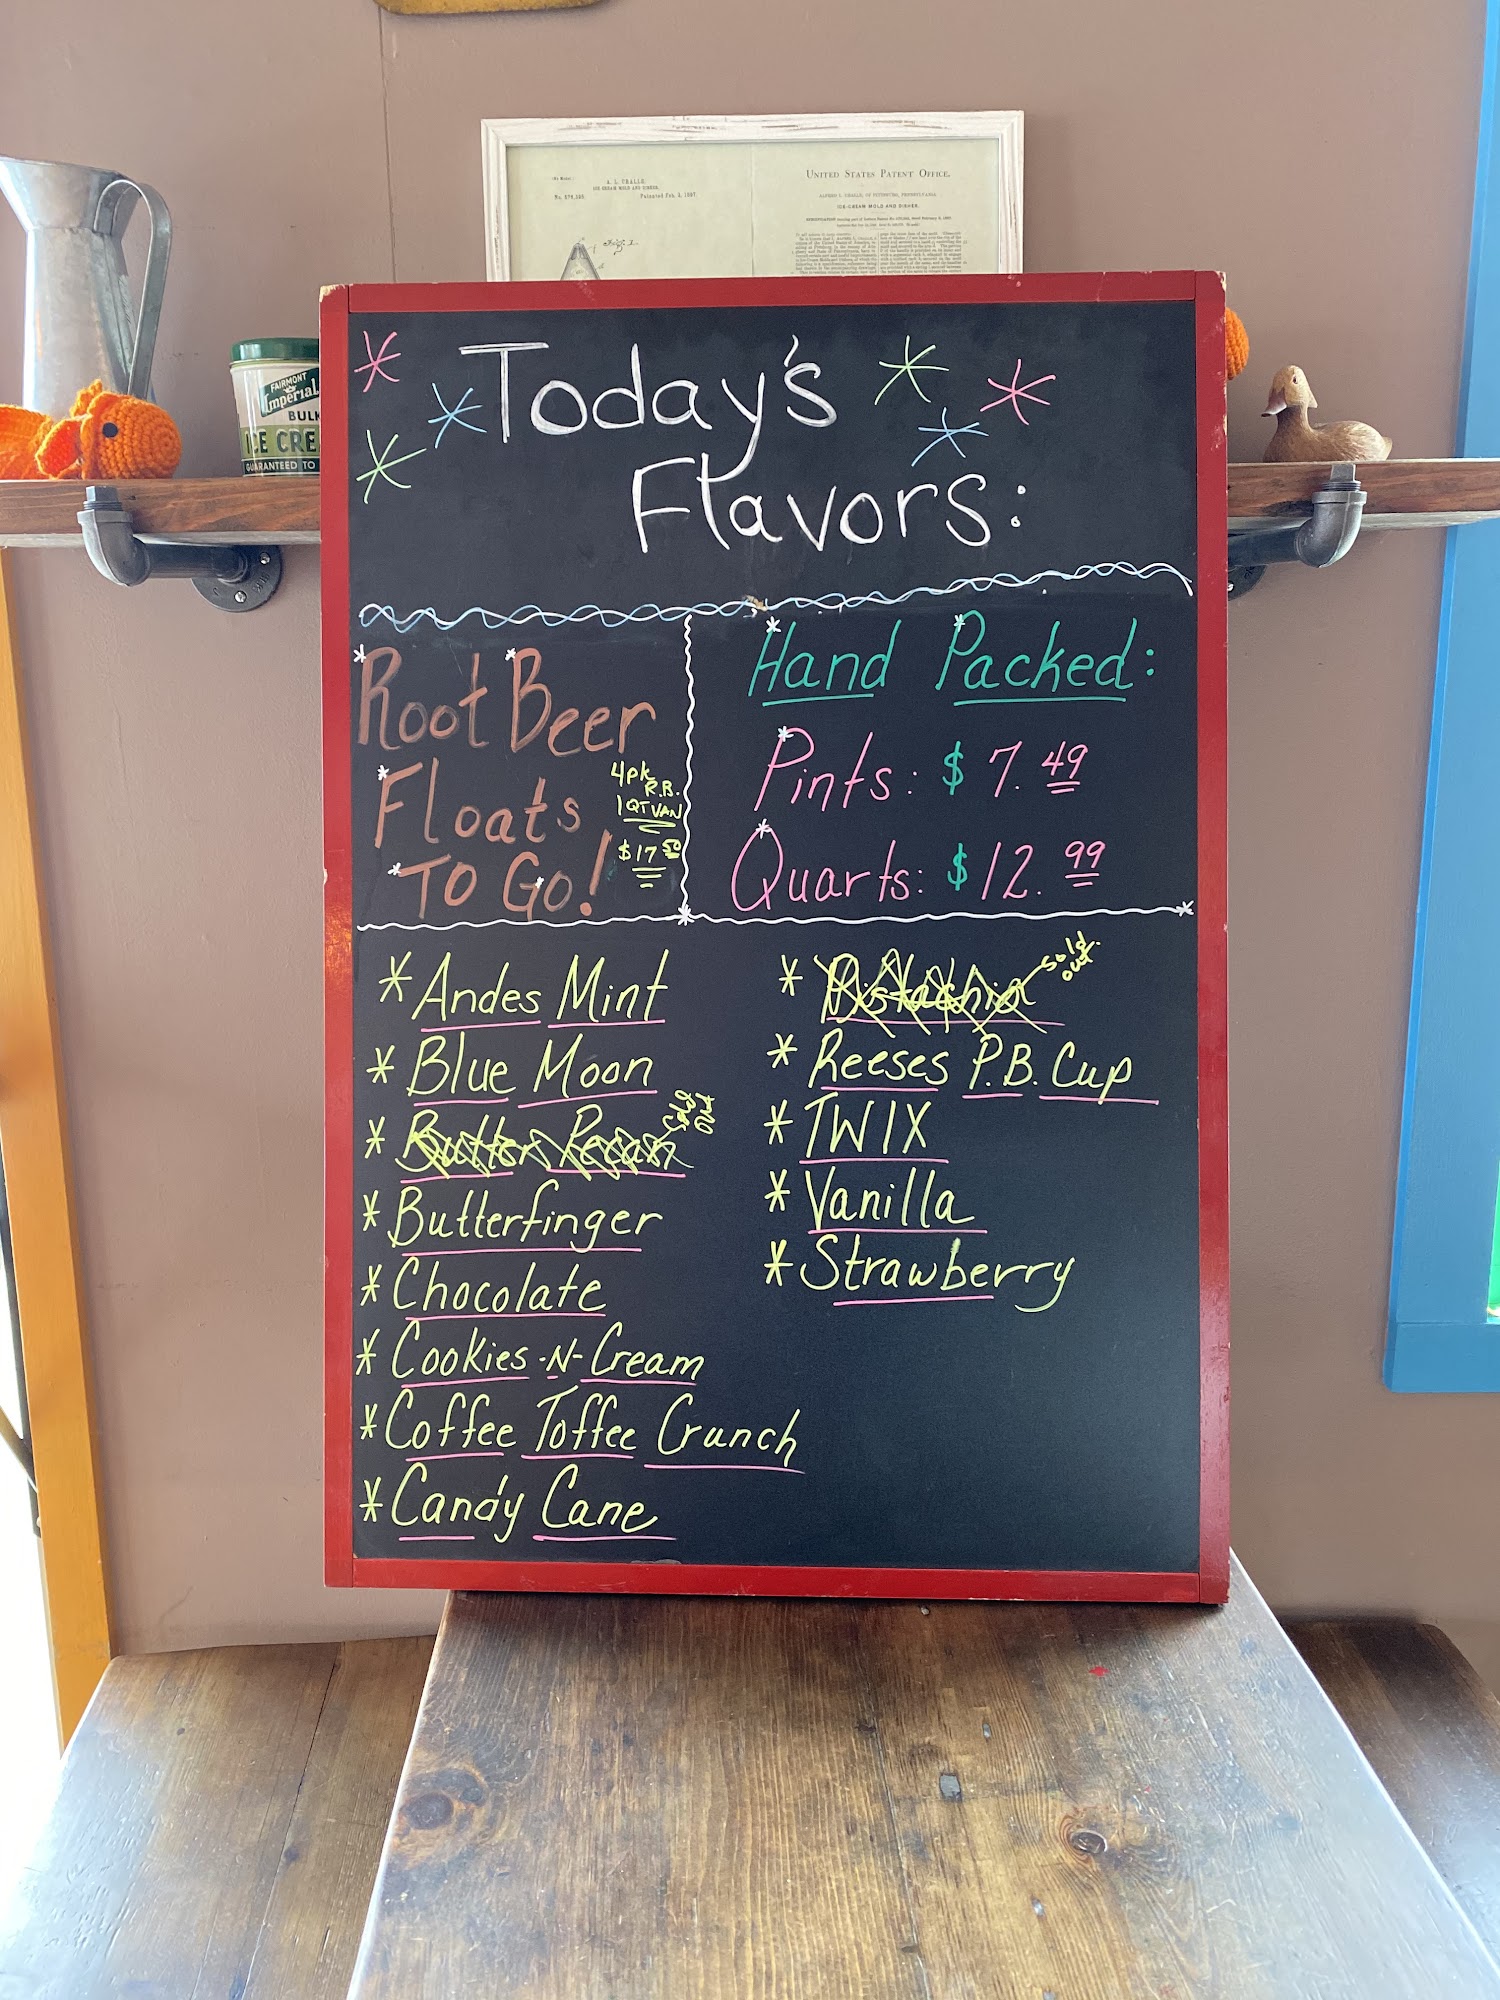 A. L. CRALLE.
ICE CREAM MOLD AND DISHER.
No. 576,395.
Patented Feb. 2, 1897.
Fig. 1.
UNITED STATES PATENT OFFICE.
ICE-CREAM MOLD AND DISHER.
FAIRMONT
Imperial
BULK
ICE CRE
GUARANTEED TO
Today's
Flavors:
Root Beer
Floats
TO GO!
4pk
R.B.
1 QT VAN
$17 50
Hand Packed:
Pints: $7.49
Quarts: $12.99
* Andes Mint
* Blue Moon
* Butter Pecan sold out
* Butterfinger
* Chocolate
* Cookies -N- Cream
* Coffee Toffee Crunch
* Candy Cane
* Pistachio sold out.
* Reeses P.B. Cup
* TWIX
* Vanilla
* Strawberry